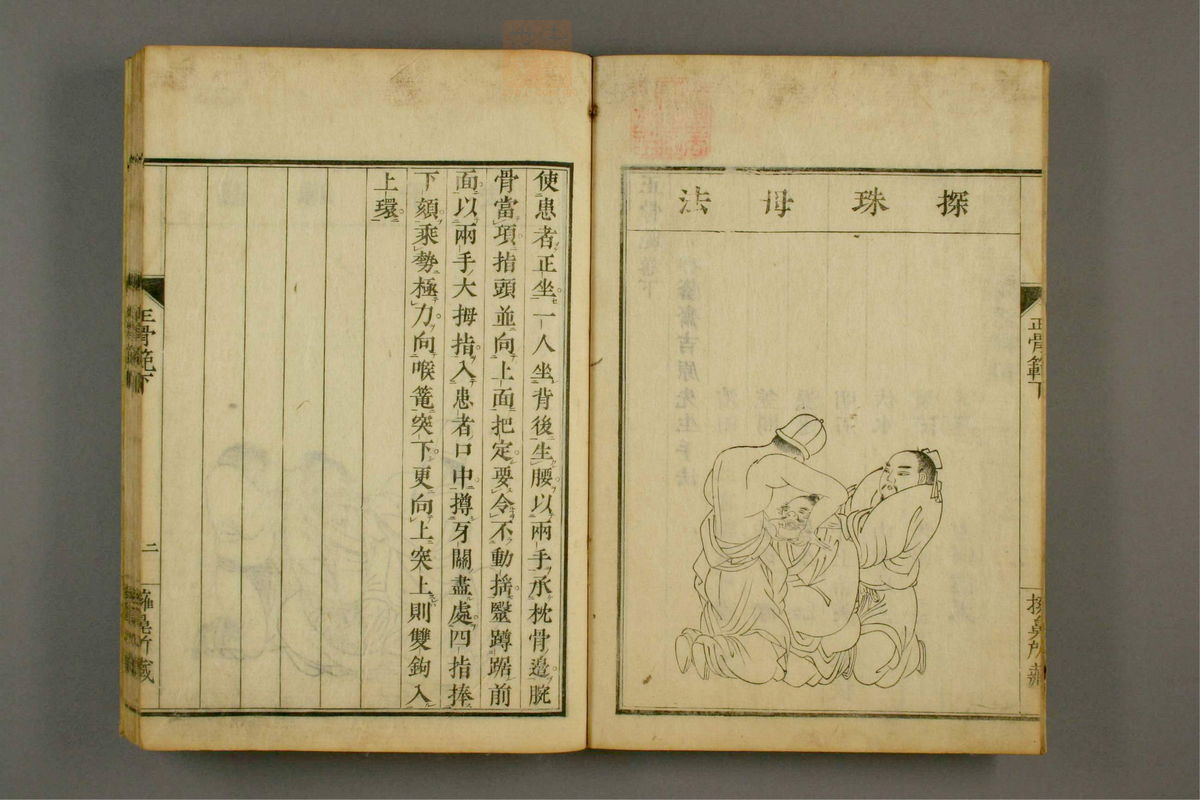 探珠母法
正骨範下
使患者正坐一人坐背後生腰以兩手承枕骨邉腕
骨當項指頭並向上面把定要令不動搖毉蹲踞前
面以兩手大拇指入患者口中撙牙關盡處四指捧
下頦乘勢極力向喉篭突下更向上突上則雙鉤入
上環
正骨範下
二